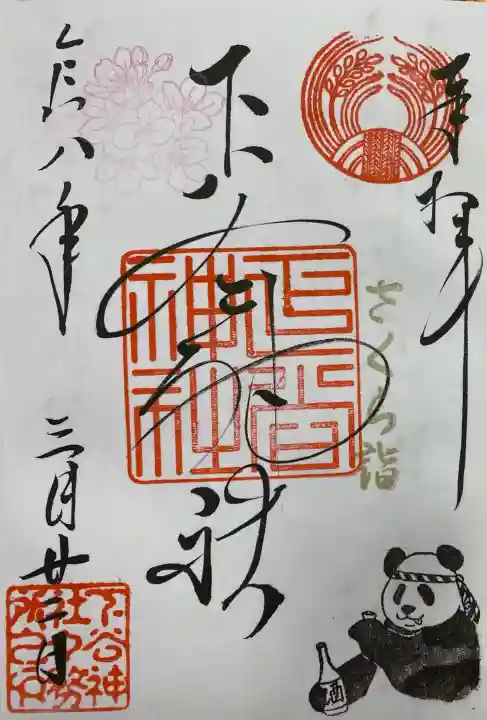 奉拝
さくら詣
下谷神社
下谷
神社
令和八年
三月廿二日
下谷神
社社務
所之印
酒